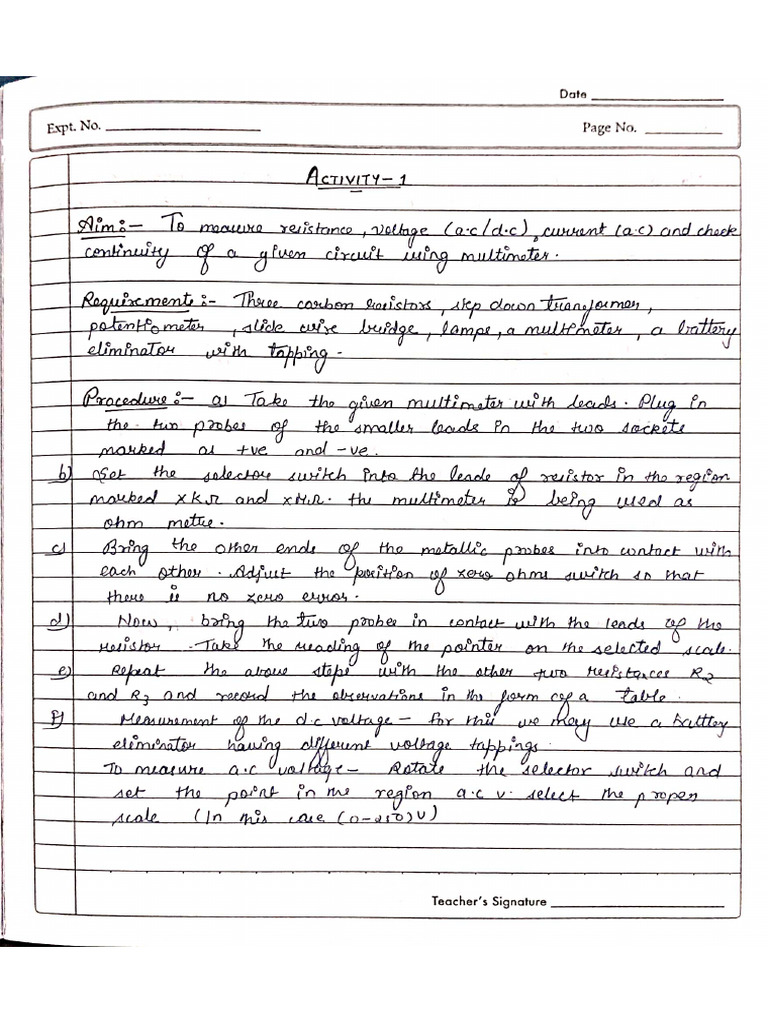 Date
Expt. No.
Page No.
ACTIVITY-1
Aim:- To measure resistance, voltage (a.c/d.c), current (a.c) and check
continuity of a given circuit using multimeter.
Requirements:- Three carbon resistors, step down transformer,
potentiometer, slide wire bridge, lamps, a multimeter, a battery
eliminator with tapping.
Procedure:- a) Take the given multimeter with leads. Plug in
the two probes of the smaller leads in the two sockets
marked as +ve and -ve.
b) Set the selector switch into the leads of resistor in the region
marked xKΩ and xMΩ. the multimeter is being used as
ohm metre.
c) Bring the other ends of the metallic probes into contact with
each other. Adjust the position of zero ohms switch so that
there is no zero error.
d) Now, bring the two probes in contact with the leads of the
resistor. Take the reading of the pointer on the selected scale.
e) Repeat the above steps with the other two resistances R2
and R3 and record the observations in the form of a table.
f) Measurement of the d.c voltage - for this we may use a battery
eliminator having different voltage tappings.
To measure a.c voltage - Rotate the selector switch and
set the point in the region a.c v. select the proper
scale (In this case (0-250)V)
Teacher's Signature